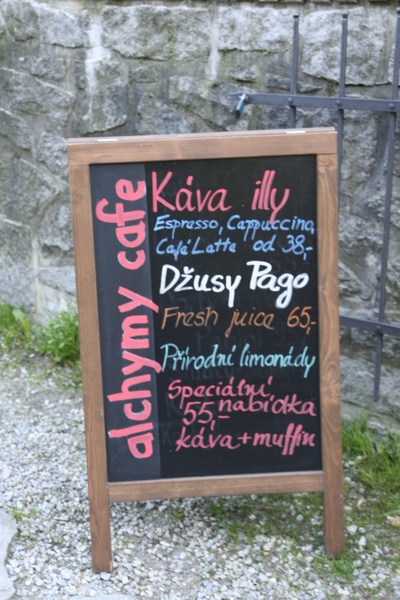 alchymy cafe
Káva illy
Espresso, Cappuccino,
Café Latte od 38,-
Džusy Pago
Fresh juice 65,-
Přírodní limonády
Speciální
55,- nabídka
káva+muffin